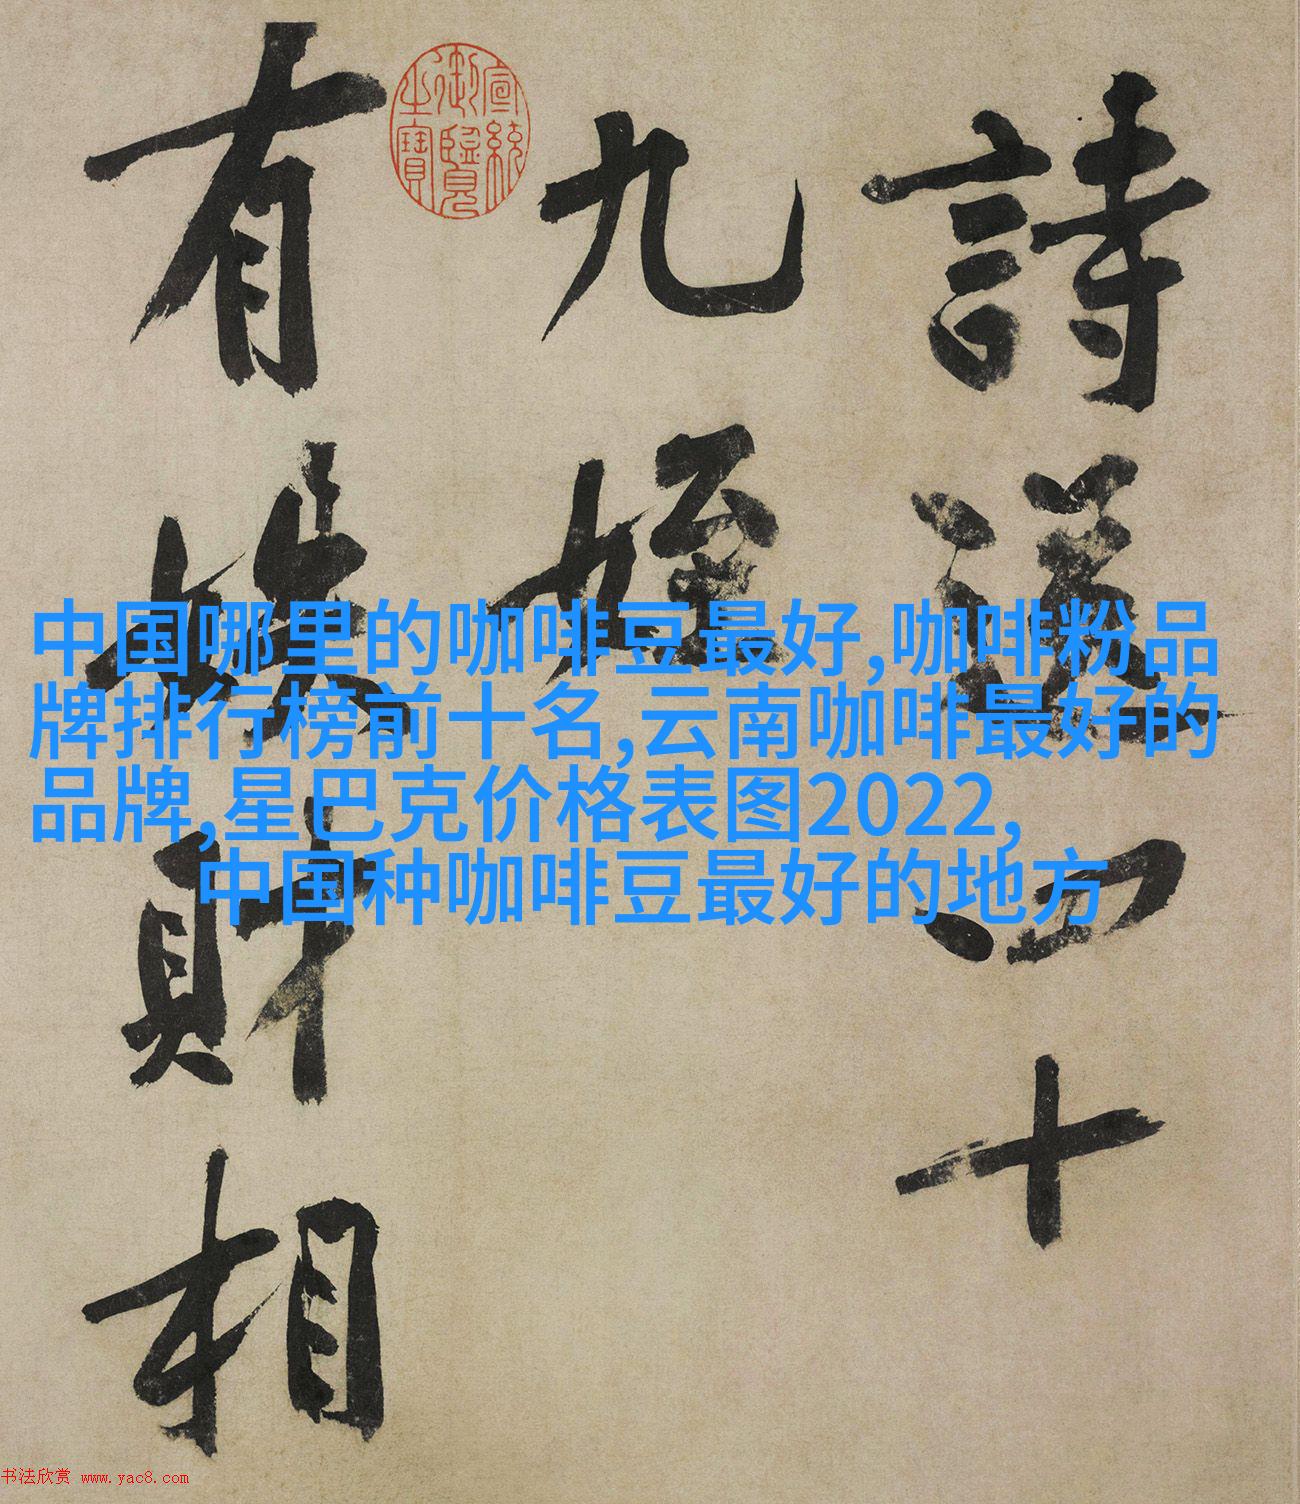 詩送四十
九姪
有財相
宣統
御覽
之寶
中国哪里的咖啡豆最好,咖啡粉品
牌排行榜前十名,云南咖啡最好的
品牌,星巴克价格表图2022,
中国种咖啡豆最好的地方
书法欣赏 www.yac8.com